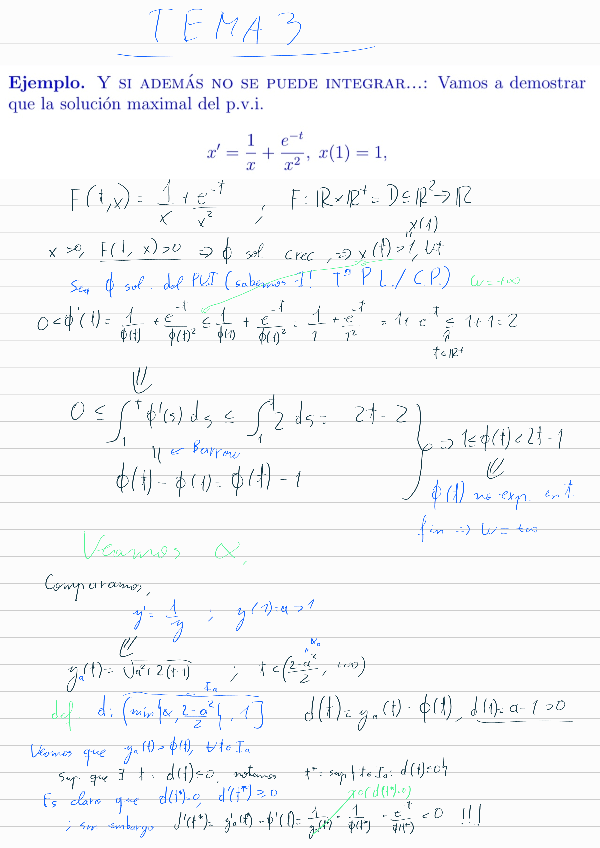 TEMA 3
Ejemplo. Y SI ADEMÁS NO SE PUEDE INTEGRAR...: Vamos a demostrar
que la solución maximal del p.v.i.
x' = 1/x + e^{-t}/x^2, x(1) = 1,
F(t,x) = 1/x + e^{-t}/x^2 ; F: ℝ×ℝ⁺ = D ⊆ ℝ² → ℝ
x(1)
x>0, F(t,x)>0 ⇒ ϕ sol crec, ⇒ x(t)>1, ∀t
Sea ϕ sol. del PVI (sabemos ∃! Tª P.L./C.P.) ω=+∞
0<ϕ'(t) = 1/ϕ(t) + e^{-t}/ϕ(t)^2 ≤ 1/ϕ(1) + e^{-t}/ϕ(1)^2 = 1/1 + e^{-t}/1^2 = 1+e^{-t} ≤ 1+1=2
t∈ℝ⁺
⇓
0 ≤ ∫_1^t ϕ'(s) ds ≤ ∫_1^t 2 ds = 2t-2
⇒ 1≤ϕ(t)<2t-1
|| ← Barrow
ϕ(t) - ϕ(1) = ϕ(t) - 1
ϕ(t) no exp. en t.
fin ⇒ ω=+∞
Veamos α,
Comparamos,
y' = 1/y ; y(1)=a>1
⇓
y_a(t) = √(a²+2(t-1)) ; t∈((2-a²)/2, +∞)
α_a
I_a
def d: (min{α, (2-a²)/2}, 1] d(t) = y_a(t) - ϕ(t), d(1)=a-1>0
Veamos que y_a(t)>ϕ(t), ∀t∈I_a
Sup. que ∃ t : d(t)=0, notamos t* = sup{t∈I_a: d(t)=0}
Es claro que d(t*)=0, d'(t*)≥0
; sin embargo d'(t*) = y_a'(t*) - ϕ'(t*) = 1/y_a(t*) - 1/ϕ(t*) - e^{-t}/ϕ(t*)² <0 !!!